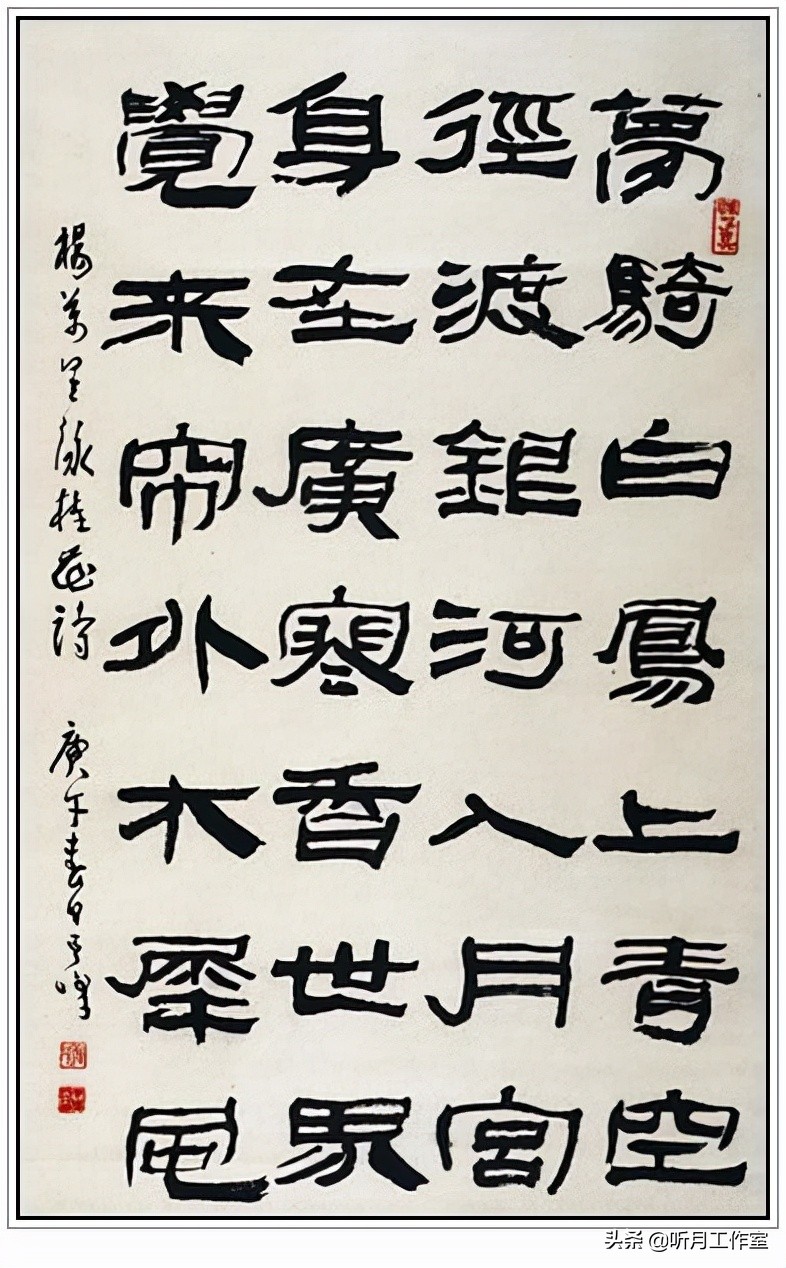 夢騎白鳳上青空
徑渡銀河入月宮
身在廣寒香世界
覺来帘外木犀風
楊萬里詠桂花詩 庚午春日
头条 @听月工作室